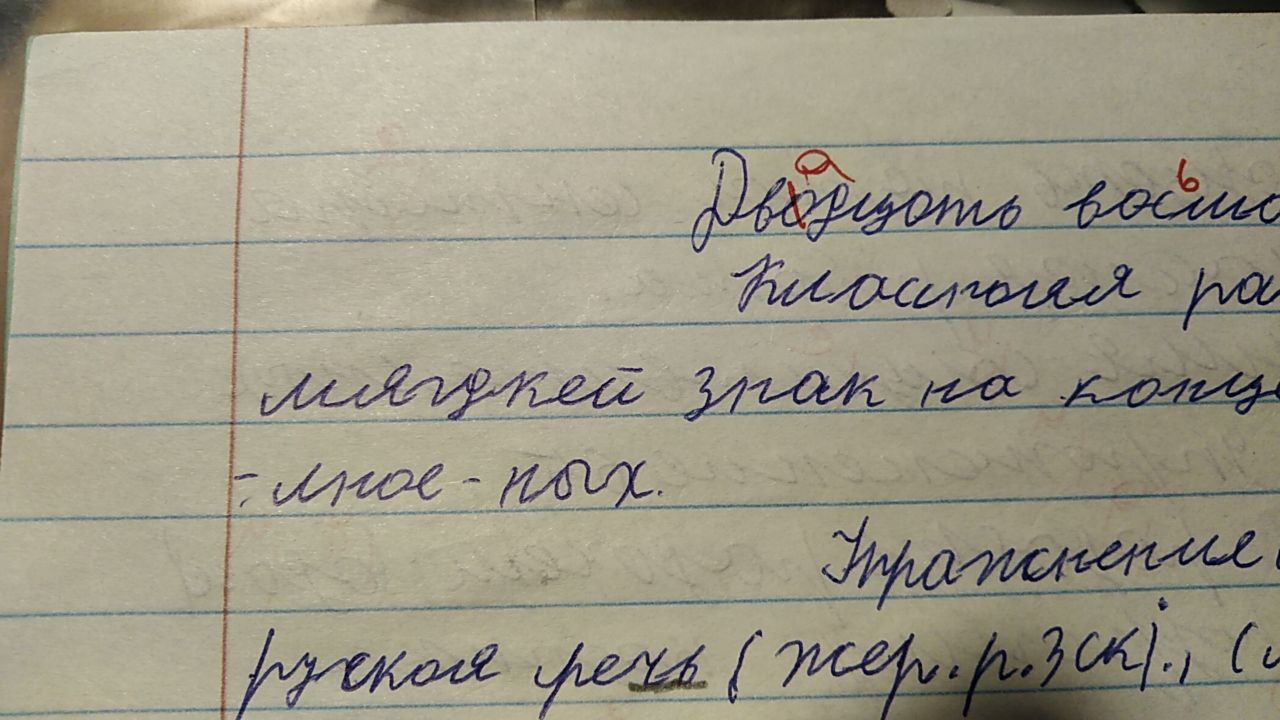 Двадцать восьмо
Классная ра
мягдкей знак на конце
-лное-ных.
Упражнение
руская речь (жер.р.3ск)., (